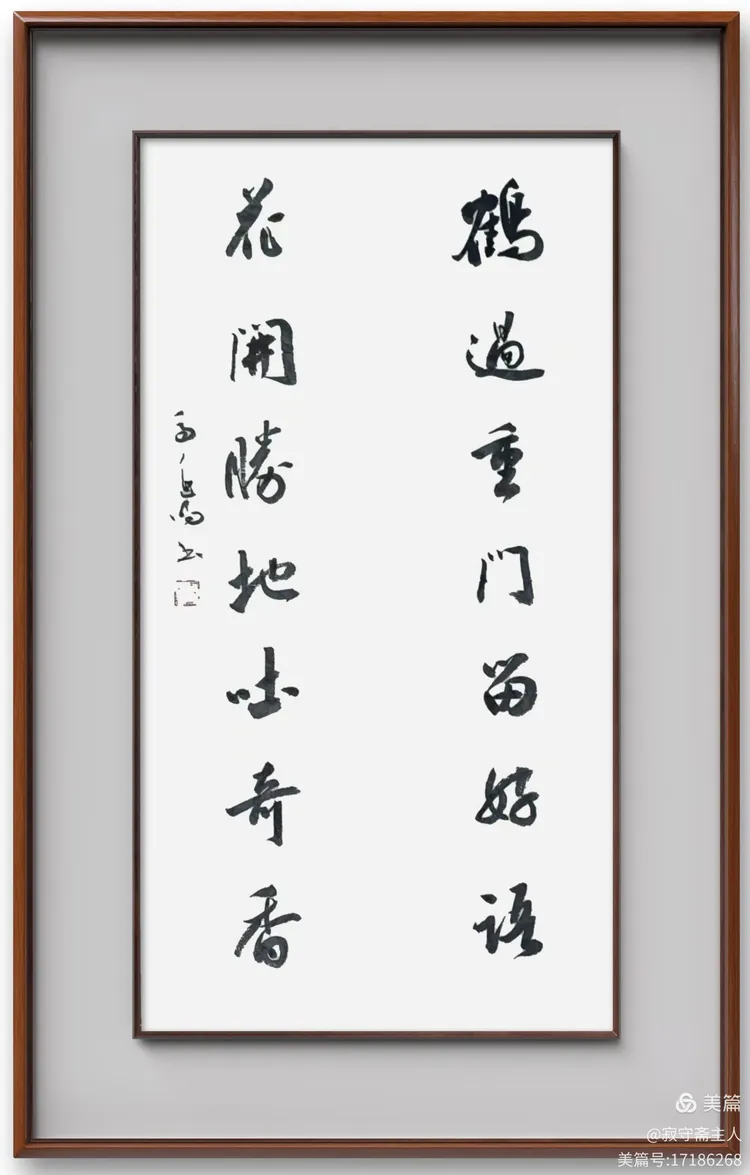 鶴過重门留好语
花開勝地吐奇香
美篇
@寂守斋主人
美篇号:17186268